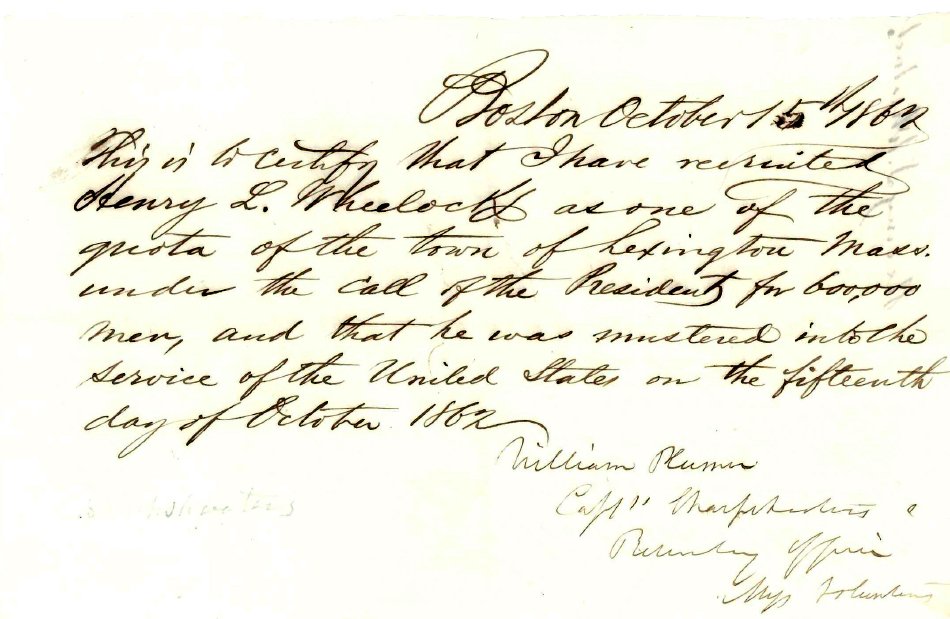 Boston October 15th 1862
This is to certify that I have recruited
Henry L. Wheelock as one of the
quota of the town of Lexington Mass.
under the call of the President for 600,000
men, and that he was mustered into the
service of the United States on the fifteenth
day of October 1862
William Plumer
Capt Sharpshooters &
Recruiting Officer
Mass Volunteers